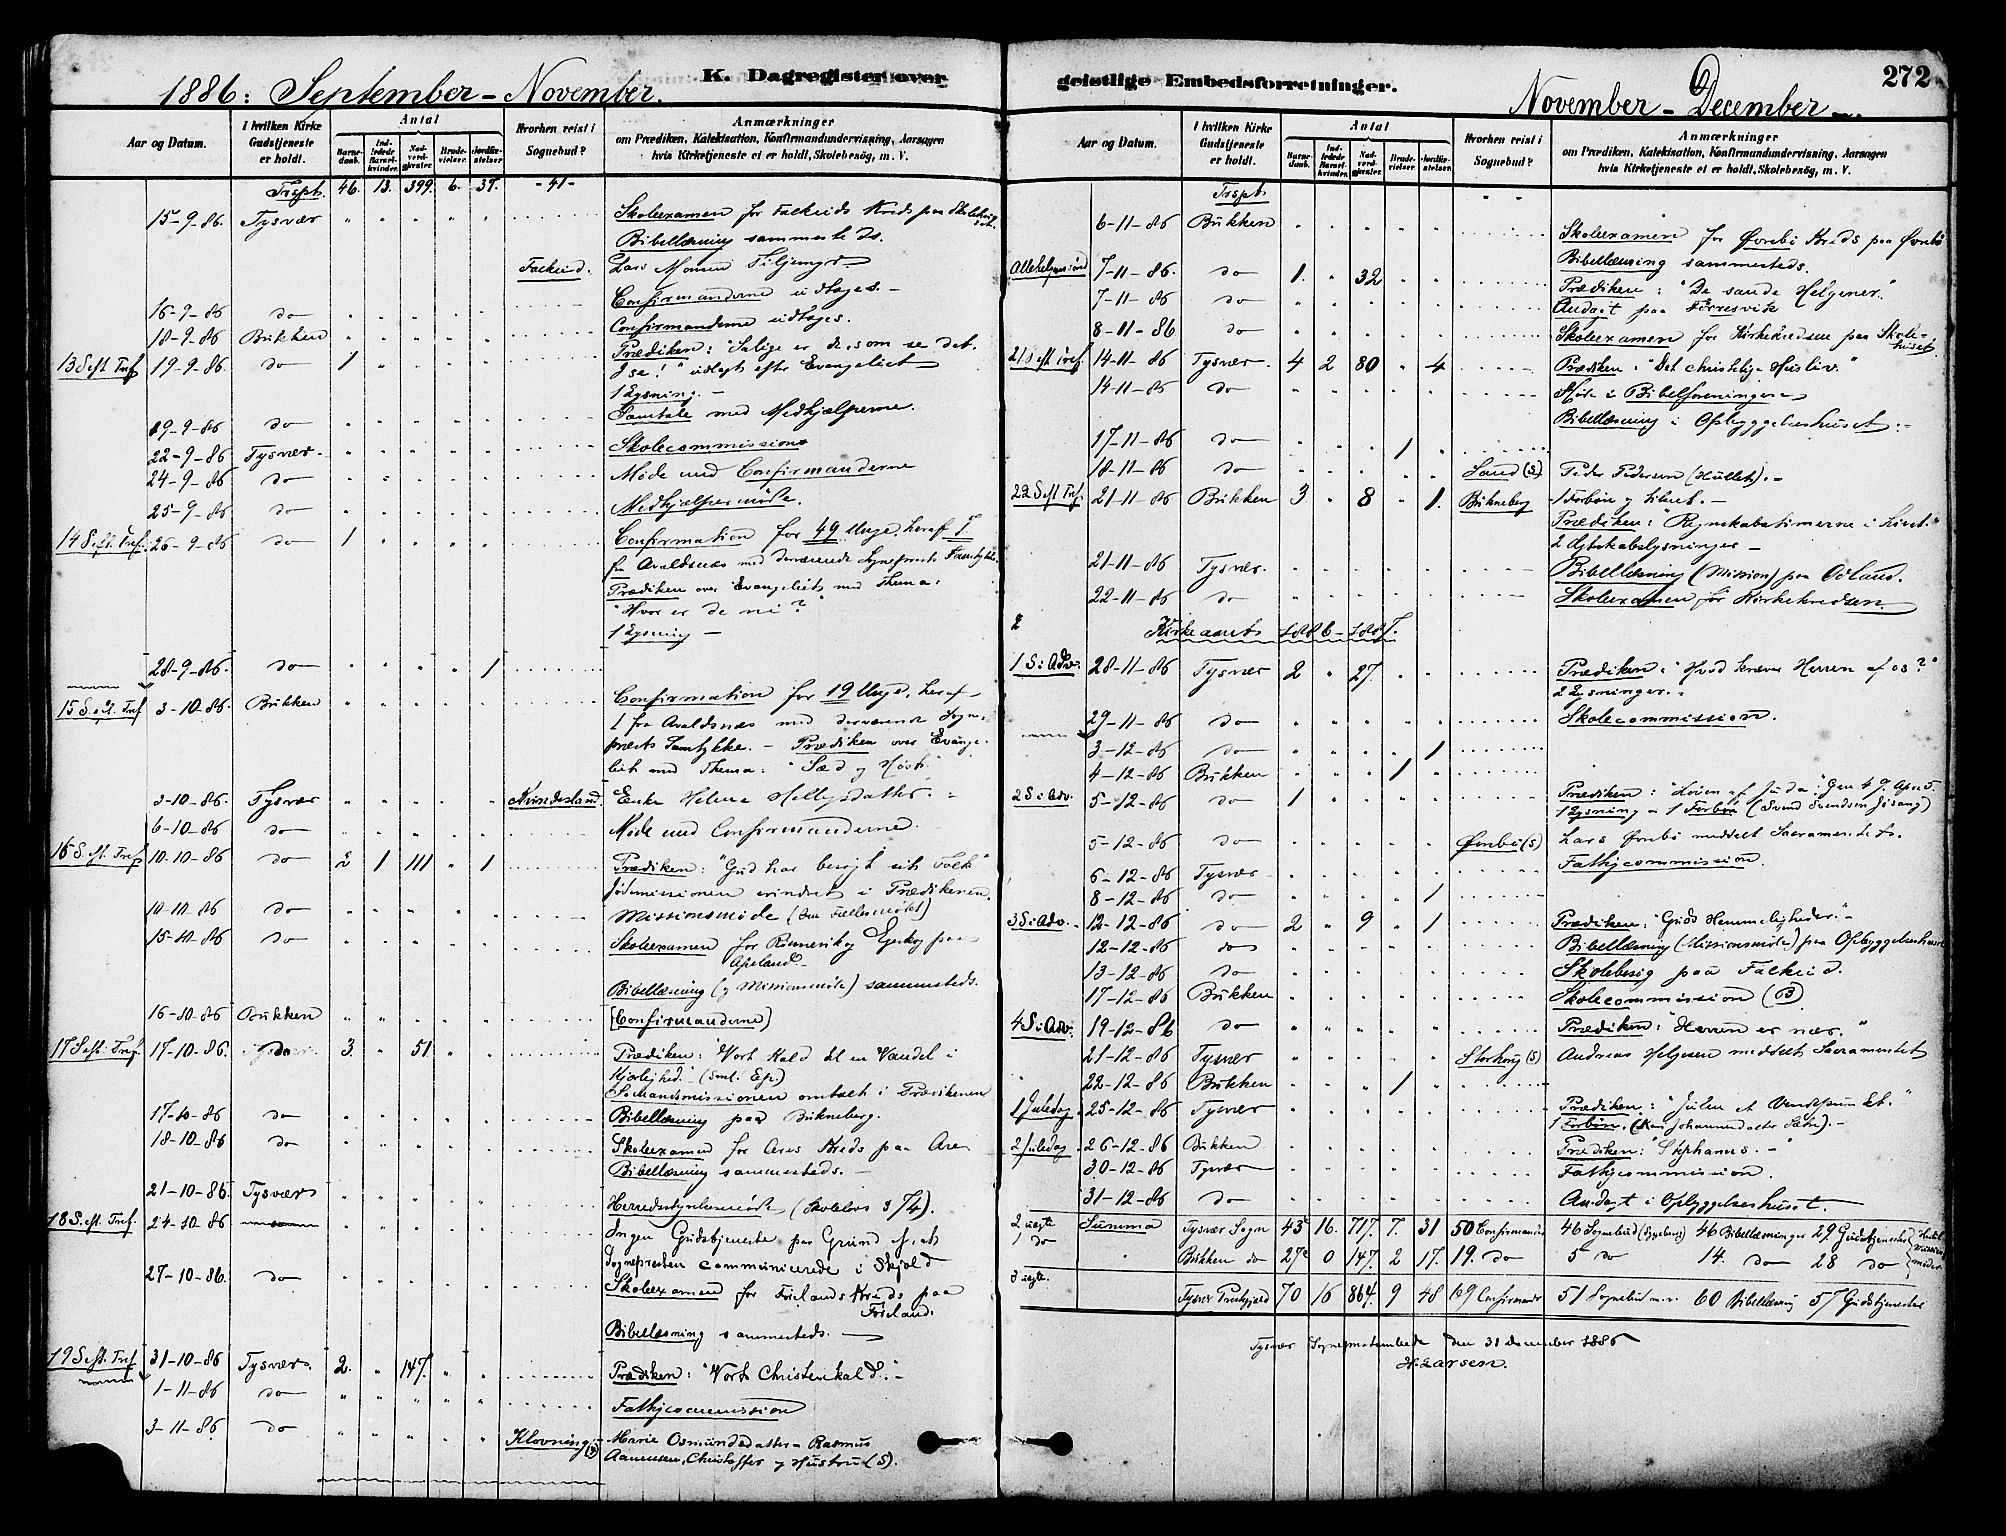 K. Dagregister over geistlige Embedsforretninger.
272
1886: September – November.
Aar og Datum.
I hvilken Kirke Gudstjeneste er holdt.
Antal
Barnedaab.
Indledede Barselkvinder.
Nadverdgjæster.
Brudevielser.
Jordfæstelser.
Hvorhen reist i Sognebud?
Anmærkninger
om Prædiken, Katekisation, Konfirmandundervisning, Aarsagen
hvis Kirketjeneste ei er holdt, Skolebesøg, m. V.
Trspt. 46. 13. 399. 6. 37. -41-
15-9-86. Tysvær Skoleexamen for Falkeids Kreds paa
Bibellæsning sammesteds.
Falkeid. Lars Monsen
16-9-86 do Confirmanderne udtages.-
18-9-86 Bukken Confirmanderne udtages.
13 S eft Tref 19-9-86. do 1 Prædiken: "Salige er de, som se det
I se!" udlagt efter Evangeliet
1 Lysning.-
19-9-86 do Samtale med Medhjælperne.
22-9-86 Tysvær. Skolecommission
24-9-86 do Møde med Confirmanderne
25-9-86 do Medhjælpermøde.
14 S. eft. Tref. 26-9-86 do 1 Confirmation for 49 Unge, heraf 1
fra Avaldsnæs med derværende Sognepræsts Samtykke.
Prædiken over Evangeliet med Thema:
"Hvor er de ni?"
1 Lysning -
28-9-86. do 1
15 S. eft. Tref 3-10-86. Bukken Confirmation for 19 Unge, heraf
1 fra Avaldsnæs med derværende Sogne-
præsts Samtykke. - Prædiken over Evange-
liet med Thema: "Sæd og Høst."
3-10-86. Tysvær Kvindesland. Enke Helene
6-10-86 do Møde med Confirmanderne.
16 S. eft. Tref 10-10-86 do 2 1 111 1 Prædiken: "Gud har besøgt sit Folk"
Jødemissionen erindret i Prædikenen.
10-10-86 do Missionsmøde (
15-10-86 do Skoleexamen for paa
Apeland.-
Bibellæsning (og Missionsmøde) sammesteds.
16-10-86 Bukken (Confirmanderne)
17 S eft. Tref. 17-10-86. do 3. 51 Prædiken: "Vort Kald til en Vandel i
Kjærlighed." (Sml. Ep.)
Sømandsmissionen omtalt i Prædikenen
17-10-86 do Bibellæsning paa Bukneberg.
18-10-86 do Skoleexamen for Kreds paa
Bibellæsning sammesteds.-
21-10-86. Tysvær Herredsstyrelsesmøde (Skolelovs § 74).
18 S. eft. Tref. 24-10-86 Ingen Gudstjeneste paa Grund af, at
Sognepresten communicerede i Skjold
27-10-86. do Skoleexamen for Førlands Kreds paa
Førland.
Bibellæsning sammesteds.
19 S eft. Tref 31-10-86 Tysvær. 2. 147. Prædiken: "Vort Christenkald."-
1-11-86 do Fattigcommission
3-11-86 do Klovning Marie Osmundsdatter - Rasmus
Aanensen, Christoffer og Hustru (S).
November – December
Aar og Datum.
I hvilken Kirke Gudstjeneste er holdt.
Antal
Barnedaab.
Indledede Barselkvinder.
Nadverdgjæster.
Brudevielser.
Jordfæstelser.
Hvorhen reist i Sognebud?
Anmærkninger
om Prædiken, Katekisation, Konfirmandundervisning, Aarsagen
hvis Kirketjeneste ei er holdt, Skolebesøg, m. V.
Trspt.
6-11-86 Bukken Skoleexamen for Øvrebø Kreds paa Øvrebø
Bibellæsning sammesteds.
Allehelgensønd 7-11-86. do 1. 32 Prædiken: "De sande Helgener."
7-11-86 do Andagt paa Førresvik
8-11-86 do Skoleexamen for Kirkekredsen paa Skole-
huset.
21 S eft Tref. 14-11-86 Tysvær. 4 2 80 4 Prædiken: "Det christelige Husliv."
14-11-86 do Møde i Bibelforeningen
Bibellæsning i Opbyggelseshuset.-
17-11-86 do 1
18-11-86 do Sand (S) Peder Pedersen (Hullet).-
22 S eft Tref. 21-11-86 Bukken 3 8 1. Bukneberg 1 Forbøn og
Prædiken: "Regnskabstimerne i Livet."
2 Ægteskabslysninger -
21-11-86 Tysvær. Bibellæsning (Mission) paa
22-11-86 do Skoleexamen for Kirkekredsen
Kirkeaaret 1886-1887.
1 S i Adv. 28-11-86 Tysvær 2 27. Prædiken: "Hvad kræver Herren af os?"
2 Lysninger.-
29-11-86 do Skolecommission.
3-12-86 do 1
4-12-86 Bukken 1
2 S i Adv. 5-12-86 do 1 Prædiken: "Løven af Juda". Gen 49. Apc 5.
1 Lysning - 1 Forbøn (Svend Svendsen Jøsang)
5-12-86 do Øvrebø (S) Lars Øvrebø meddelt Sacramentet.
6-12-86 Tysvær Fattigcommission.
8-12-86 do 1
3 S i Adv. 12-12-86 do 2 9 1 Prædiken: "Guds Hemmeligheder."-
12-12-86 do Bibellæsning (Missionsmøde) paa Opbyggelseshuset
13-12-86 do Skolebesøg paa Falkeid.
17-12-86 Bukken Skolecommission (B)
4 S i Adv. 19-12-86 do Prædiken: "Herren er nær."
21-12-86 Tysvær Storhaug (S) Andreas Helgesen meddelt Sacramentet
22-12-86 Bukken 1
1 Juledag 25-12-86 Tysvær Prædiken: "Julen et Vendepunkt."
1 Forbøn.
2 Juledag 26-12-86 Bukken Prædiken: "Stephanus."-
30-12-86 Tysvær Fattigcommission.
31-12-86 do Andagt i Opbyggelseshuset.
2 uægte Summa Tysvær Sogn 43 16. 717. 7. 31 50 Confirmander 46 Sognebud 46 Bibellæsninger 29 Gudstjenester
1 do Bukken do 27 0 147. 2 17. 19. do 5 do 14. do 28 do
3 uægte. Tysvær Prstgjæld 70 16 864. 9 48 69 Confirmander 51 Sognebud 60 Bibellæsning 57 Gudstjenester
Tysvær Sognepræstembede den 31 December 1886
H. Larsen.